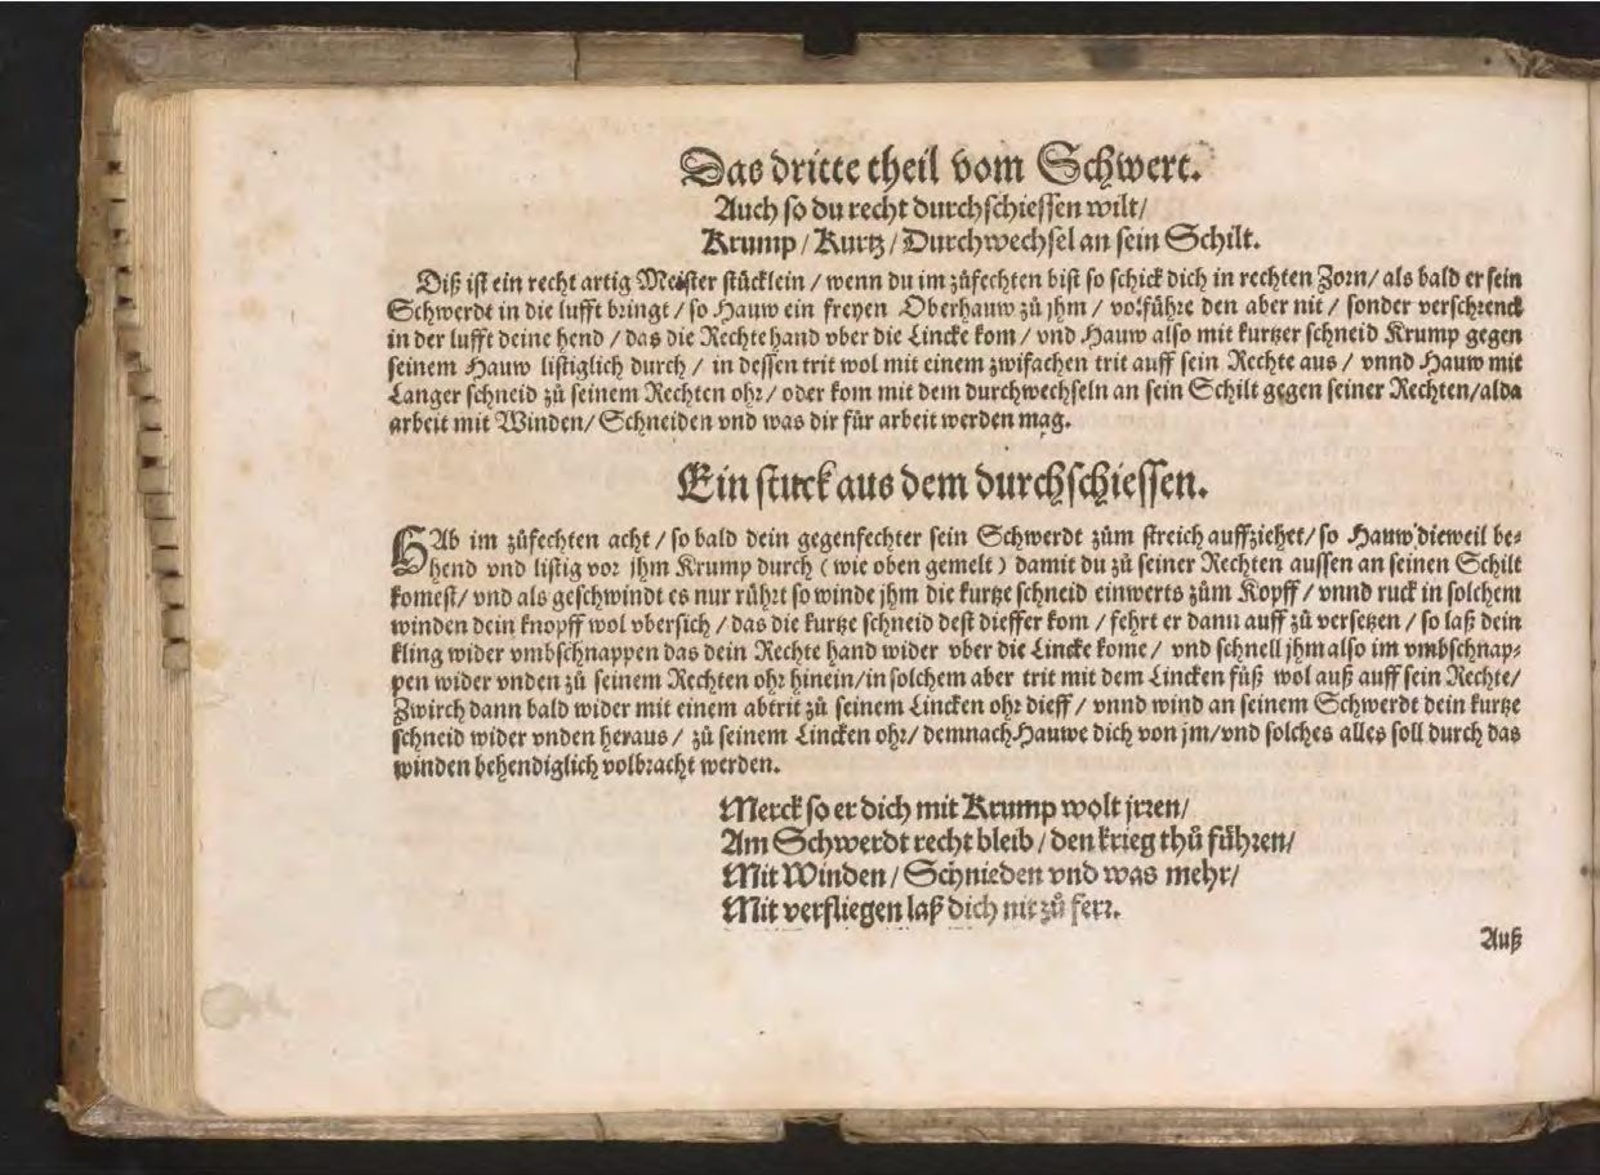 Das dritte theil vom Schwert.
Auch so du recht durchschiessen wilt/
Krump / Kurtz / Durchwechsel an sein Schilt.
Diß ist ein recht artig Meister stücklein / wenn du im zůfechten bist so schick dich in rechten Zorn / als bald er sein
Schwerdt in die lufft bringt / so Hauw ein freyen Oberhauw zů jhm / volführe den aber nit / sonder verschrenck
in der lufft deine hend / das die Rechte hand vber die Lincke kom / vnd Hauw also mit kurtzer schneid Krump gegen
seinem Hauw listiglich durch / in dessen trit wol mit einem zwifachen trit auff sein Rechte aus / vnnd Hauw mit
Langer schneid zů seinem Rechten ohr / oder kom mit dem durchwechseln an sein Schilt gegen seiner Rechten/alda
arbeit mit Winden/ Schneiden vnd was dir für arbeit werden mag.
Ein stuck aus dem durchschiessen.
HAb im zůfechten acht / so bald dein gegenfechter sein Schwerdt zům streich auffziehet/ so Hauw dieweil be-
hend vnd listig vor jhm Krump durch ( wie oben gemelt ) damit du zů seiner Rechten aussen an seinen Schilt
komest/ vnd als geschwindt es nur rührt so winde jhm die kurtze schneid einwerts zům Kopff / vnnd ruck in solchem
winden dein knopff wol vbersich / das die kurtze schneid dest dieffer kom / fehrt er dann auff zů versetzen / so laß dein
kling wider vmbschnappen das dein Rechte hand wider vber die Lincke kome / vnd schnell jhm also im vmbschnap-
pen wider vnden zů seinem Rechten ohr hinein/in solchem aber trit mit dem Lincken fůß wol auß auff sein Rechte/
Zwirch dann bald wider mit einem abtrit zů seinem Lincken ohr dieff / vnnd wind an seinem Schwerdt dein kurtze
schneid wider vnden heraus / zů seinem Lincken ohr/ demnach Hauwe dich von jm/vnd solches alles soll durch das
winden behendiglich volbracht werden.
Merck so er dich mit Krump wolt jrren/
Am Schwerdt recht bleib / den krieg thů führen/
Mit Winden / Schnieden vnd was mehr/
Mit verfliegen laß dich nit zů ferr.
Auß